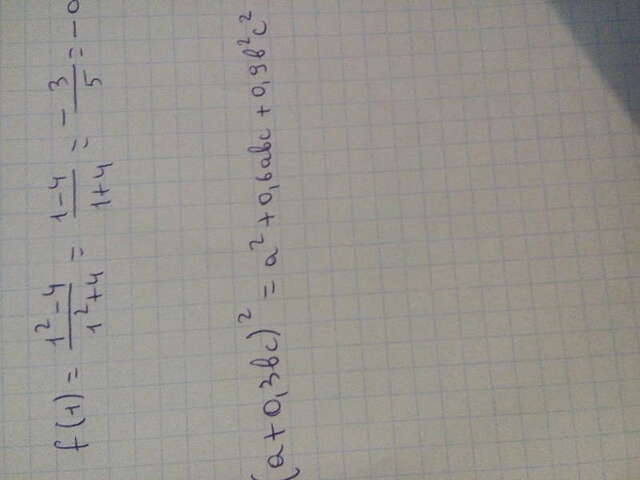 f(1) = (1² - 4)/(1² + 4) = (1 - 4)/(1 + 4) = - 3/5 = - 0
(a + 0,3bc)² = a² + 0,6abc + 0,9b²c²